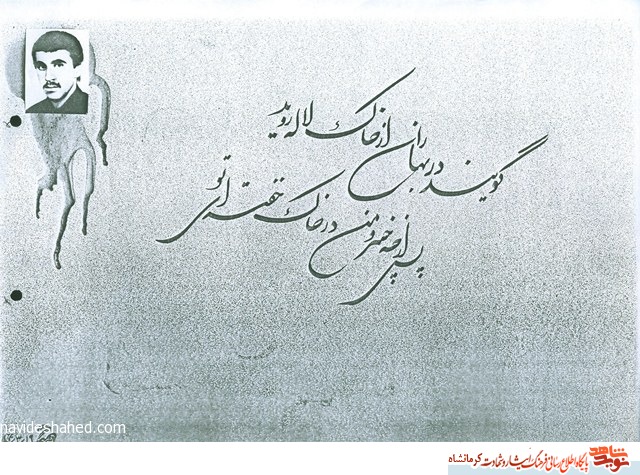 گویند در بهاران از خاک لاله روید
پس از چه خسرو من در خاک خفته ای تو
navideshahed.com
نوید شاهد
پایگاه اطلاع رسانی فرهنگ ایثار و شهادت کرمانشاه